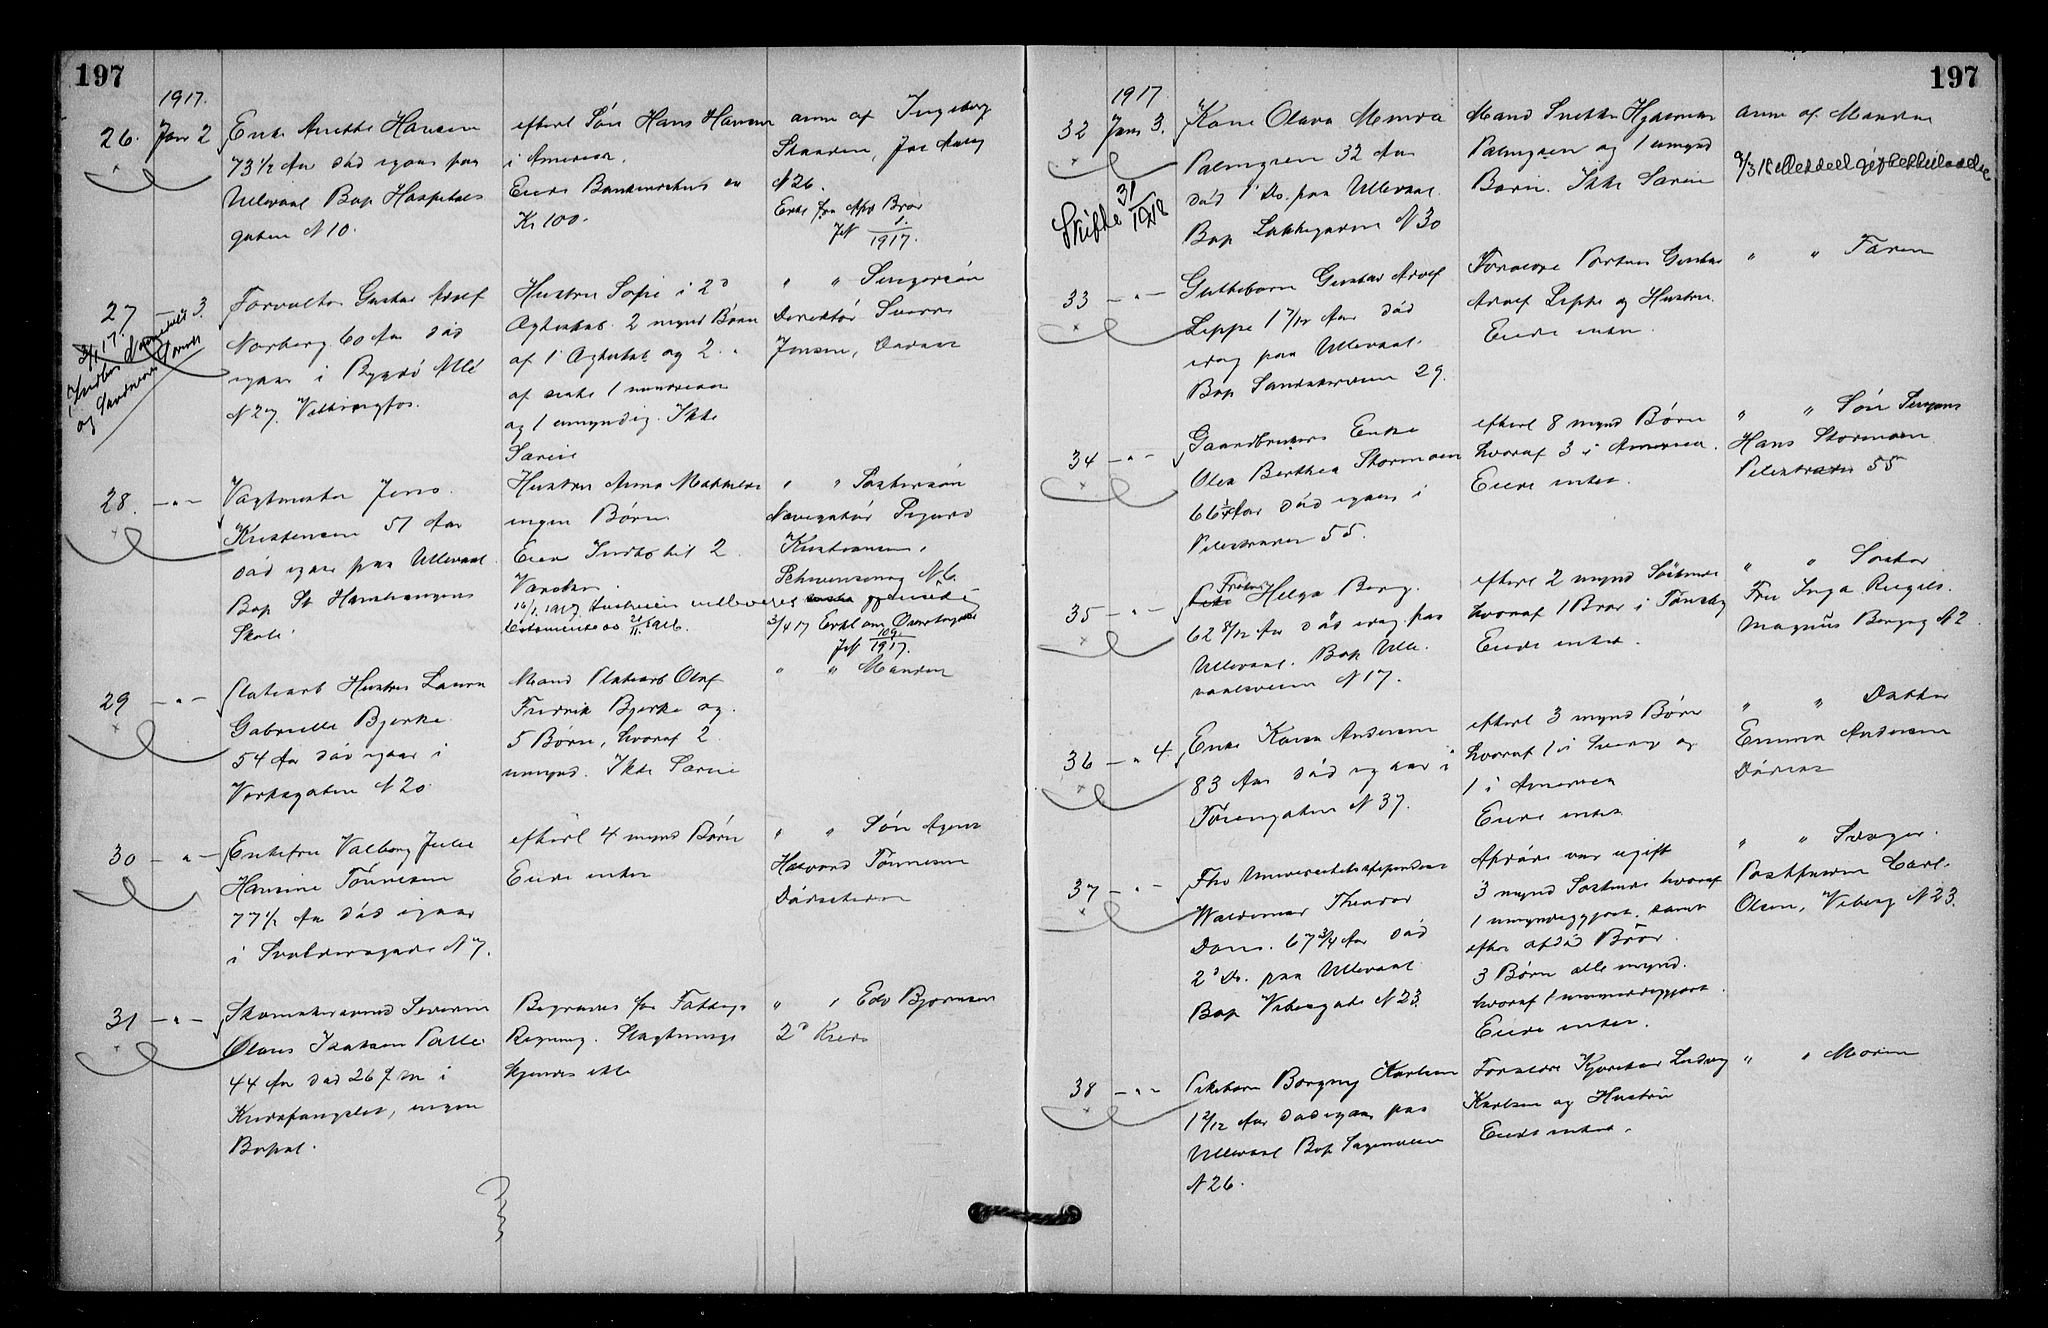 197
1917.
26. Jan 2 Enke Anette Hansen
73 1/2 Aar død igaar paa
Ullevaal Bop Hospitals
gaten N 10.
efterl Søn Hans Hansen
i Amerika.
Eiede Bankindskud ca
Kr 100.
anm af Ingeborg
N 26.
Erkl fra Bror
JN 1/1917.
27 — 3. Forvalter Gustav Adolf
Norberg 60 Aar død
igaar i Bygdø Allé
N 27.
3/1 17.
og
Hustru Sofie i 2d
Ægteskab. 2 mynd Børn
af 1 Ægteskab og 2
af sidste 1
og 1 umyndig. Ikke
Særeie
" " Svigersøn
Direktør Sverre
Jensen,
28. — " — Vagtmester Jens
Kristensen 51 Aar
død igaar paa Ullevaal
Bop St Hanshaugens
Skole
Hustru Anna
ingen Børn
Eier Indbo til 2
Værelser.
16/1 1917
testamente 11.
" " Søstersøn
Navigatør Sigurd
Kristensen,
Schwensensg N 6.
gjensidig
3/4 17 Erkl om Overtagelse
JN 109/1917.
29 — " — Pladearb Hustru Laura
Gabrielle Bjerke
54 Aar død igaar i
Verksgaten N 20.
Mand Pladearb Olaf
Fredrik Bjerke og
5 Børn, hvoraf 2
umynd. Ikke Særeie
" " Manden
30 — " — Enkefru Valborg Julie
Hansine Tønnesen
77 1/2 Aar død igaar
i Svoldersgade N 7.
efterl 4 mynd Børn
Eiede intet
" " Søn Agent
Tønnesen
31 — " — Skomakersvend Severin
Olaus Isaksen
44 Aar død 26 f.M i
Kredsfængslet, ingen
Bopæl.
Begraves for Fattig
Regning. Slægtninge
kjendes ikke
" " Edv Bjørnsen
2d Kreds
197
1917
32 Jan 3. Kone Olava Minda
Palmgren 32 Aar
død 1 ds. paa Ullevaal
Bop Lakkegaden N 30
Skifte 31/1918
Mand Snekker Hjalmar
Palmgren og 1 umynd
Barn. Ikke Særeie
anm af Manden
33 — " — Guttebarn Gustav Adolf
Leppe 1 7/12 Aar død
idag paa Ullevaal.
Bop Sandakerveien 29.
Forældre Portner Gustav
Adolf Leppe og Hustru
Eiede intet.
" " Faren
34 — " — Gaardbrukers Enke
Olea Berthea Stormoen
66 1/4 Aar død igaar i
Pilestrædet 55.
efterl 8 mynd Børn
hvoraf 3 i Amerika.
Eiede intet.
" " Søn
Hans Stormoen
Pilestrædet 55
35 — " — Frøken Helga Berg.
62 8/12 Aar død idag paa
Ullevaal. Bop Ulle-
vaalsveien N 17.
efterl 2 mynd Søstre
hvoraf 1 Bror i Tønsberg
Eiede intet.
" " Søster
Fru Inga
Magnus Bergsg N 2
36 — " 4. Enke Karen Andersen
83 Aar død igaar i
Tøiengaten N 37.
efterl 3 mynd Børn
hvoraf 1 i Sverig og
1 i Amerika
Eiede intet
" " Datter
Emma Andersen
37 — " — Fhv Universitetsstipendiat
Waldemar Theodor
67 3/4 Aar død
2d ds. paa Ullevaal
Bop Vibesgate N 23.
Afdøde var ugift
3 mynd Søstre hvoraf
1 umyndiggjort. samt
efter afdød Bror
3 Børn alle mynd.
hvoraf 1 umyndiggjort.
Eiede intet.
" " Svoger
Carl
Olsen, Vibesg N 23.
38 — " — Pikebarn Borgny Karlsen
1 2/12 Aar død igaar paa
Ullevaal Bop Sagveien
N 26.
Forældre Kjørekar Ludvig
Karlsen og Hustru
Eiede intet.
" " Moren